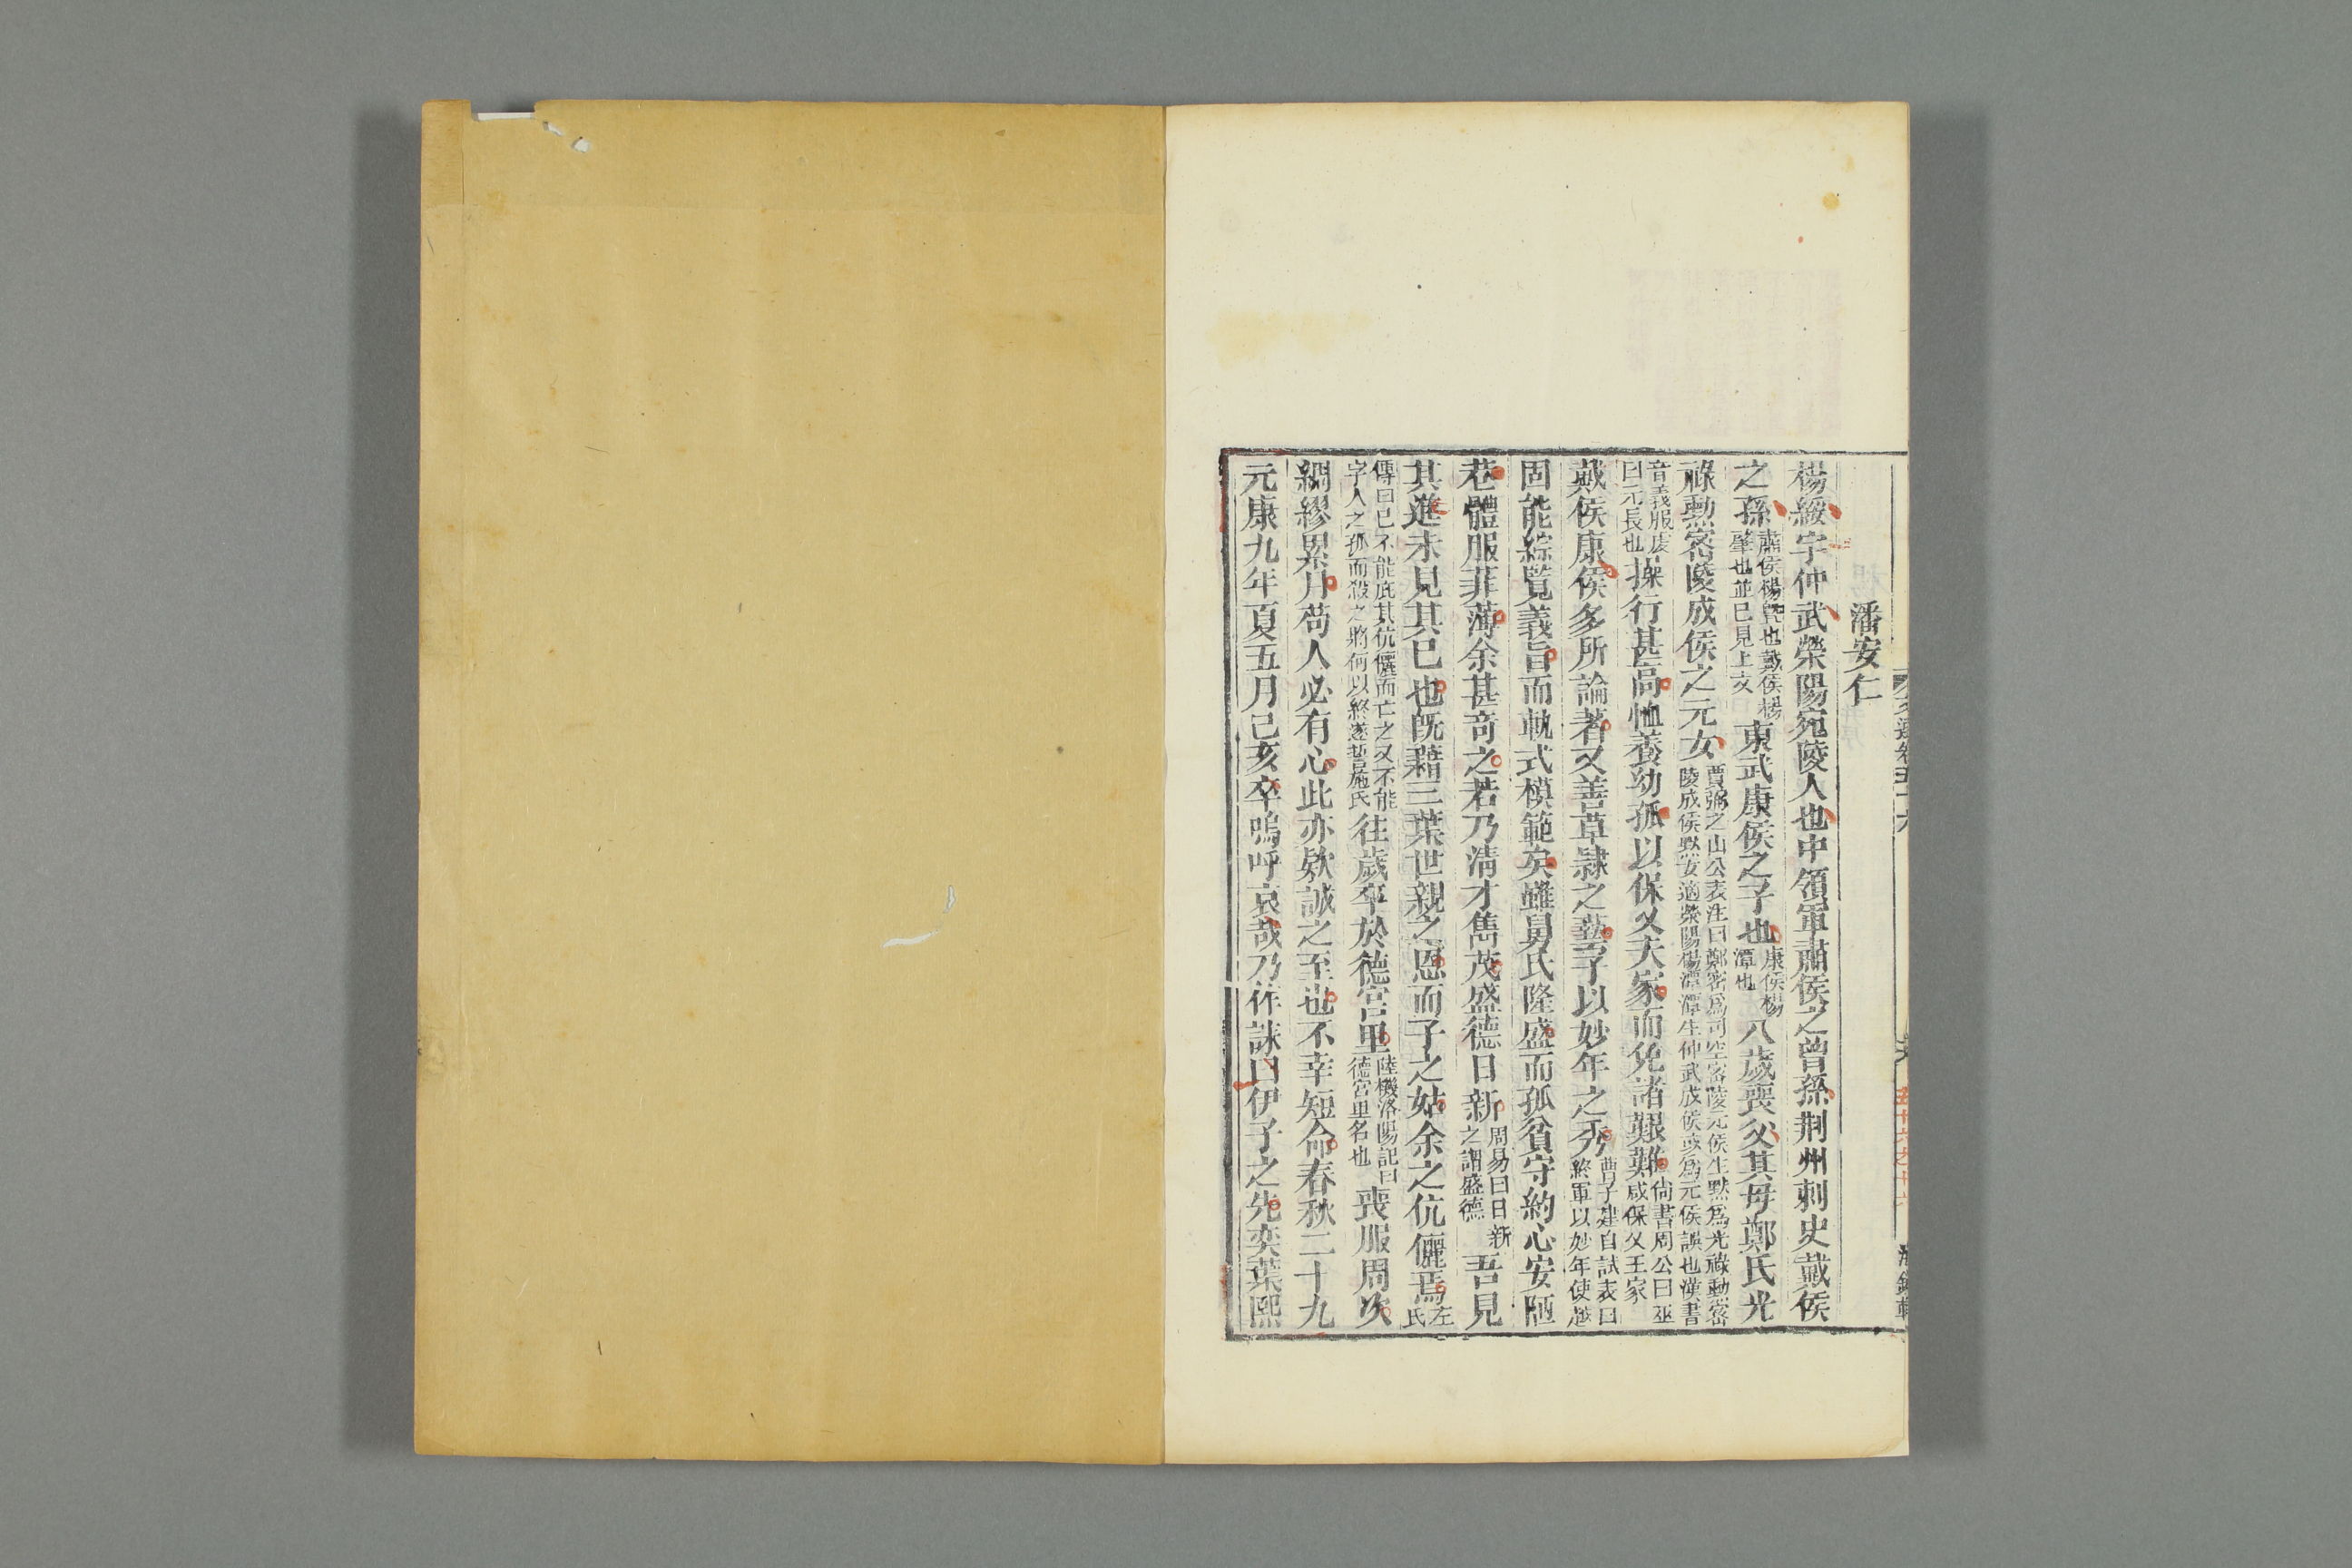 潘安仁
楊綏字仲武滎陽宛陵人也中領軍肅侯之曾孫荆州刺史戴侯
之孫肅侯楊曁也戴侯楊肇也並已見上文東武康侯之子也康侯楊潭也八歲喪父其母鄭氏光
祿勲密陵成侯之元女賈弼之山公表注曰鄭袤爲司空密陵元侯生黙爲光祿勲密陵成侯黙女適滎陽楊潭潭生仲武成侯或爲元侯誤也漢書
音義服虔曰元長也操行甚高恤養幼孤以保乂夫家而免諸艱難尙書周公曰巫咸保乂王家
戴侯康侯多所論著又善草隷之藝子以妙年之秀曹子建自試表曰終軍以妙年使越
固能綜覽義旨而軌式模範矣雖舅氏隆盛而孤貧守約心安陋
巷體服菲薄余甚竒之若乃清才雋茂盛德日新周易曰日新之謂盛德吾見
其進未見其已也旣藉三葉世親之恩而子之姑余之伉儷焉左氏
傳曰已不能庇其伉儷而亡之又不能字人之孤而殺之將何以終遂誓施氏往歲卒於德宮里陸機洛陽記曰德宮里名也喪服周次
綢繆累月苟人必有心此亦欵誠之至也不幸短命春秋二十九
元康九年夏五月己亥卒嗚呼哀哉乃作誄曰伊子之先奕葉熙